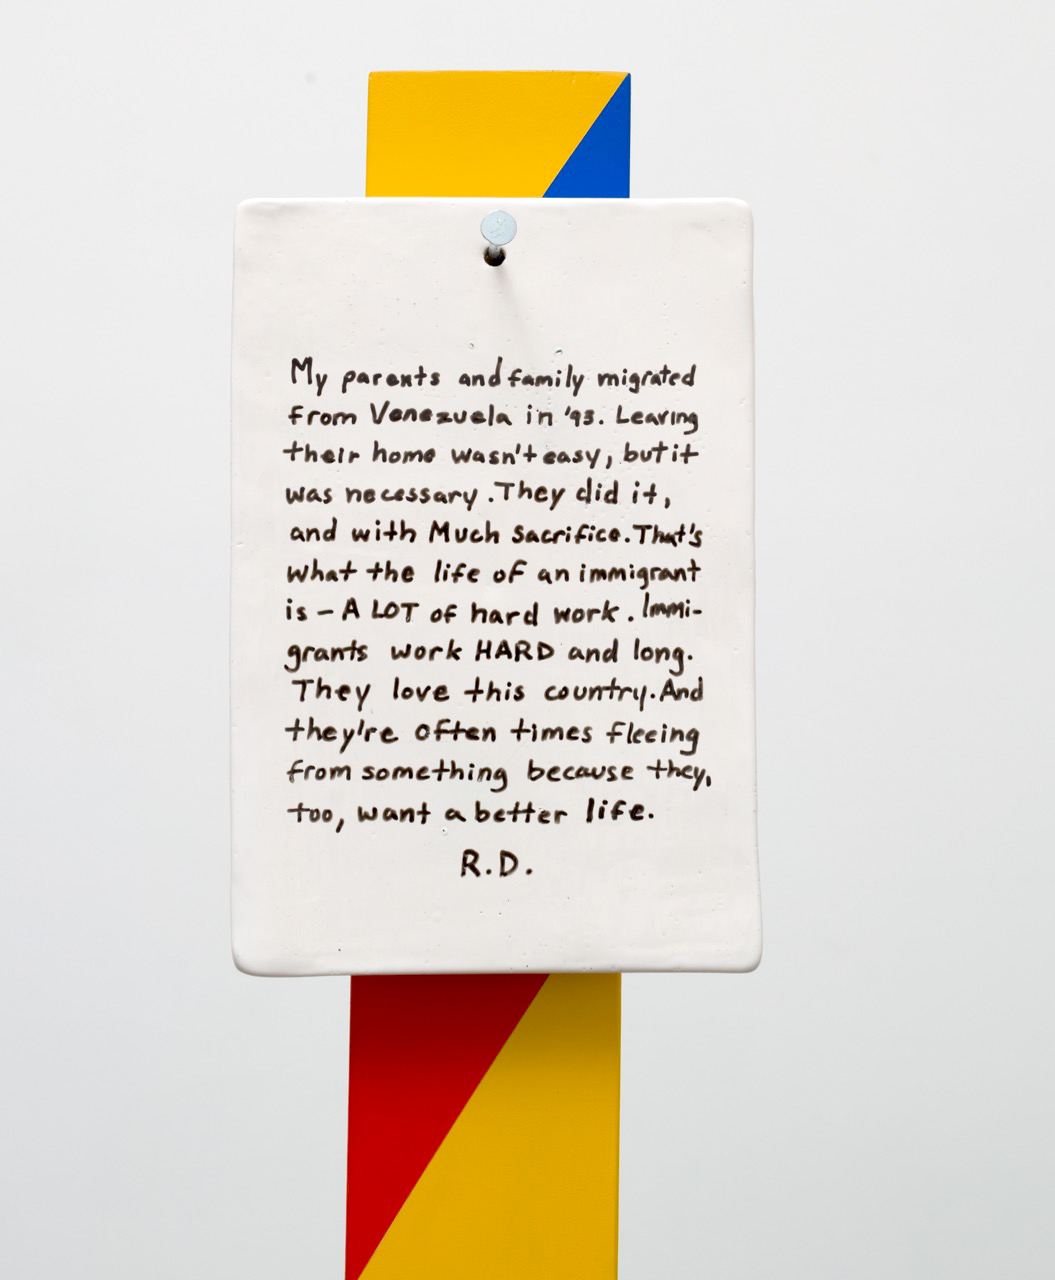 My parents and family migrated
from Venezuela in '93. Leaving
their home wasn't easy, but it
was necessary. They did it,
and with Much Sacrifice. That's
what the life of an immigrant
is – A LOT of hard work. Immi-
grants work HARD and long.
They love this country. And
they're often times fleeing
from something because they,
too, want a better life.
R.D.